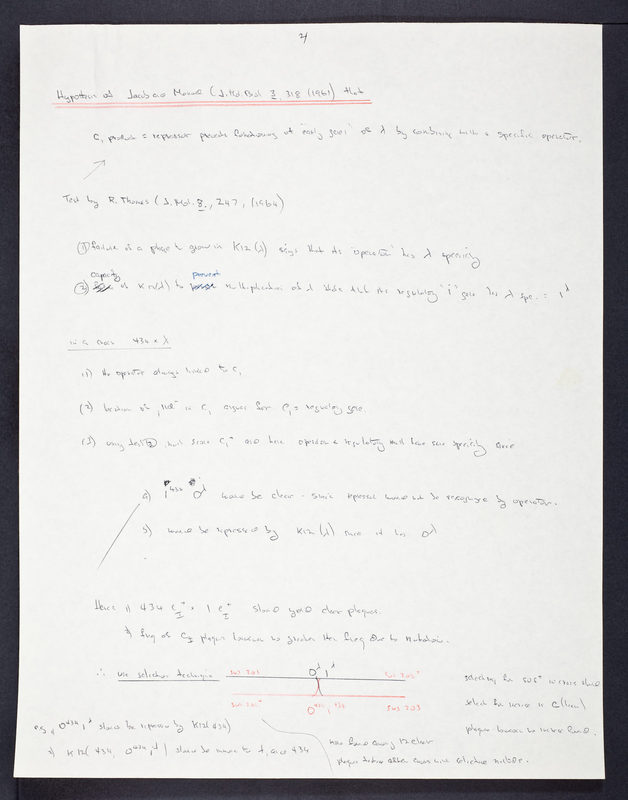 2/
Hypothesis of Jacob and Monod (J. Mol. Biol 3, 318 (1961) that
C₁ product = repressor prevents functioning of "early genes" of λ by combining with a specific operator.
Test by R. Thomas (J. Mol. 8, 247, (1964)
① failure of a phage to grow in K12(λ) says that its "operator" has λ specificity
② capacity of K12(λ) to prevent multiplication of λ that the regulatory "i" gene has λ spe. = i^λ
in a cross 434 x λ
(1) the operator always linked to C₁
(2) location of "ind⁻" in C₁ argues for C₁ = regulatory gene.
(3) using test ②, C₁⁺ and have operator & regulatory must have same specificity since
a) i^434 O^λ would be clear - since repressor would not be recognized by operator.
b) would be repressed by K12(λ) since it has O^λ
Hence 434 c_I⁺ x λ c_I⁺ should yield clear plaques.
freq of C_I plaques however no greater than freq due to mutation.
∴ use selection technique
sus 203 O^λ i^λ sus 203⁺
sus 203⁺ O^434 i^434 sus 203
selecting for sus⁺ in cross should
select for increase in c (clear)
plaques however no increase found.
e.g. O^434 i^λ should be repressed by K12(434)
K12(434, O^434 i^λ) should be immune to λ and 434
none found among 12 clear
plaques